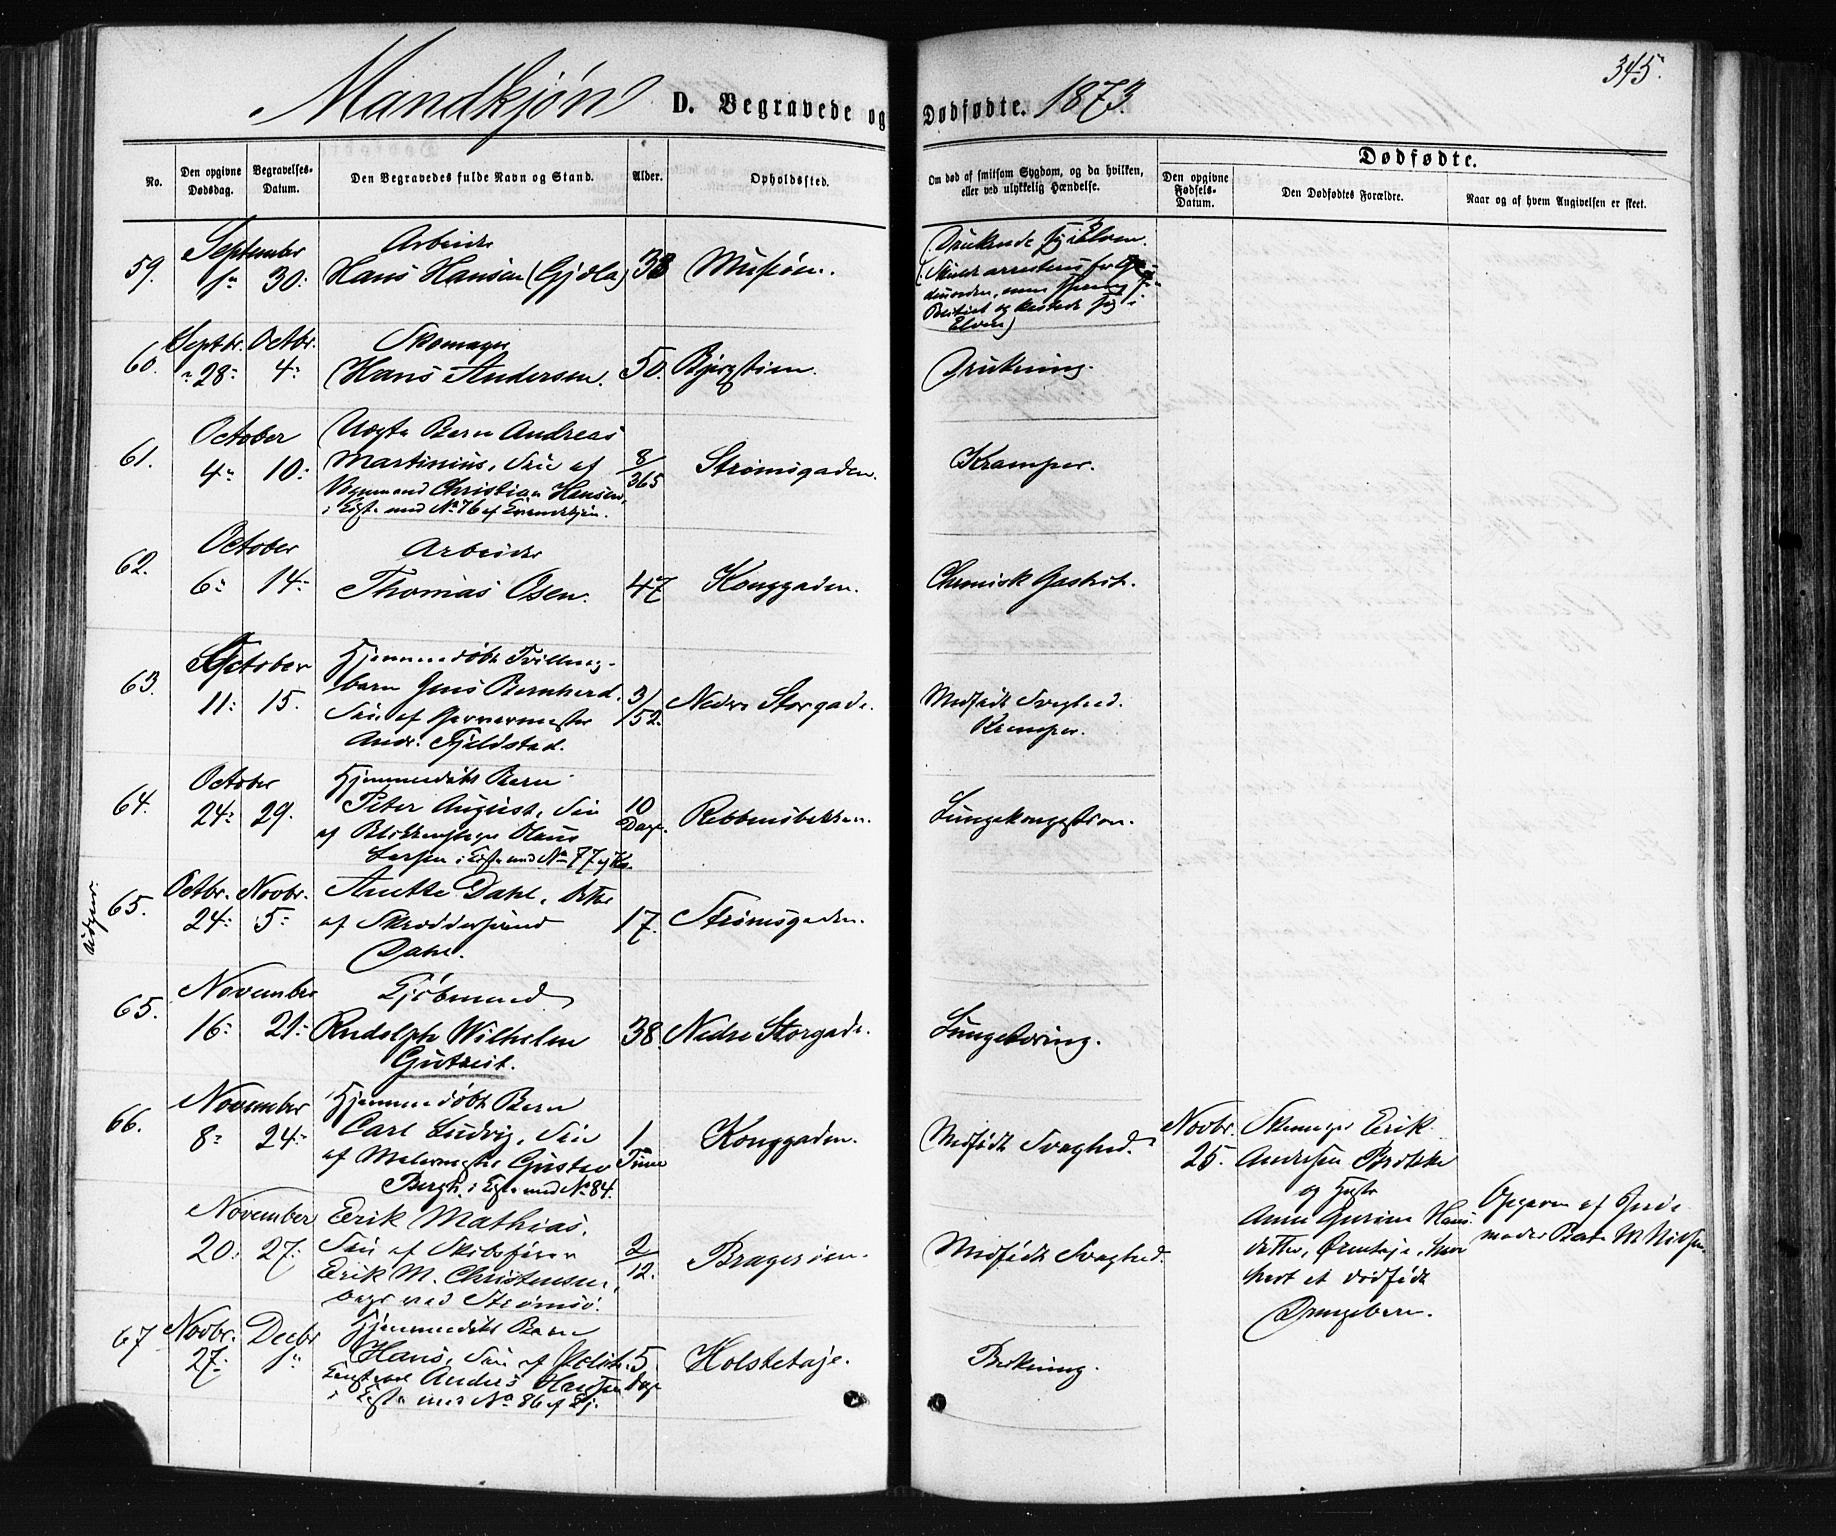 345.
Mandkjøn D. Begravede og Dødfødte. 1873.
No.
Den opgivne Dødsdag.
Begravelses-Datum.
Den Begravedes fulde Navn og Stand.
Alder.
Opholdssted.
Om død af smitsom Sygdom, og da hvilken, eller ved ulykkelig Hændelse.
Dødfødte.
Den opgivne Fødsels-Datum.
Den Dødfødtes Forældre.
Naar og af hvem Angivelsen er skeet.
September Arbeider
59. 30. Hans Hansen (Gjøla) 38 Musøen.
i Elven.
Politiet og kastede sig i
Elven)
Septbr. Octbr. Skomager
60. 28. 4. Hans Andersen. 50. Bjergstien. Drukning.
October Uægte Barn Andreas
61. 4. 10. Martinius, Søn af 8/365 Strømsgaden. Kramper.
Christian Hansen,
No 76 af Qvindekjøn.
October Arbeider
62. 6. 14. Thomas Osen. 47 Konggaden. Chronisk Gastrit.
October Hjemmedøbt Tvilling-
63. 11. 15. barn Jens Bernhard, 3/52. Nedre Storgade. Medfødt Svaghed.
Søn af Garvermester Kramper.
Andr. Fjeldstad.
October Hjemmedøbt Barn
64. 24. 29. Peter August, Søn 10 Dage. Rebbensbakken. Lungekongestion.
af Blikkenslager Hans
Larsen No 77
Udgaar.
Octbr. Novbr. Anette Dahl, Datter
65. 24. 5. af Skræddersvend 17. Strømsgaden.
Dahl.
November
65. 16. 21. Rudolph Wilhelm 38. Nedre Storgade. Lungetæring.
Gutzeit.
November Hjemmedøbt Barn
66. 8. 24. Carl Ludvig, Søn 1 Time Konggaden. Medfødt Svaghed.
af Malermester Gustav
Bergh. No 84.
Novbr. 25. Skomager Erik
Andersen Brække
og Hustru
Anne Hans-
datter, har
født et dødfødt
Drengebarn.
Opgaven af Jorde-
moder M. Nielsen
November Erik Mathias,
20. 27. Søn af Skibsfører 2/12. Bragerøen. Medfødt Svaghed.
Erik M. Christensen,
begr. ved Strømsø.
Novbr. Decbr. Hjemmedøbt Barn
67 27. Hans, Søn af Politi- 5 Dage Holstetøje.
Anders Hansen
No 86